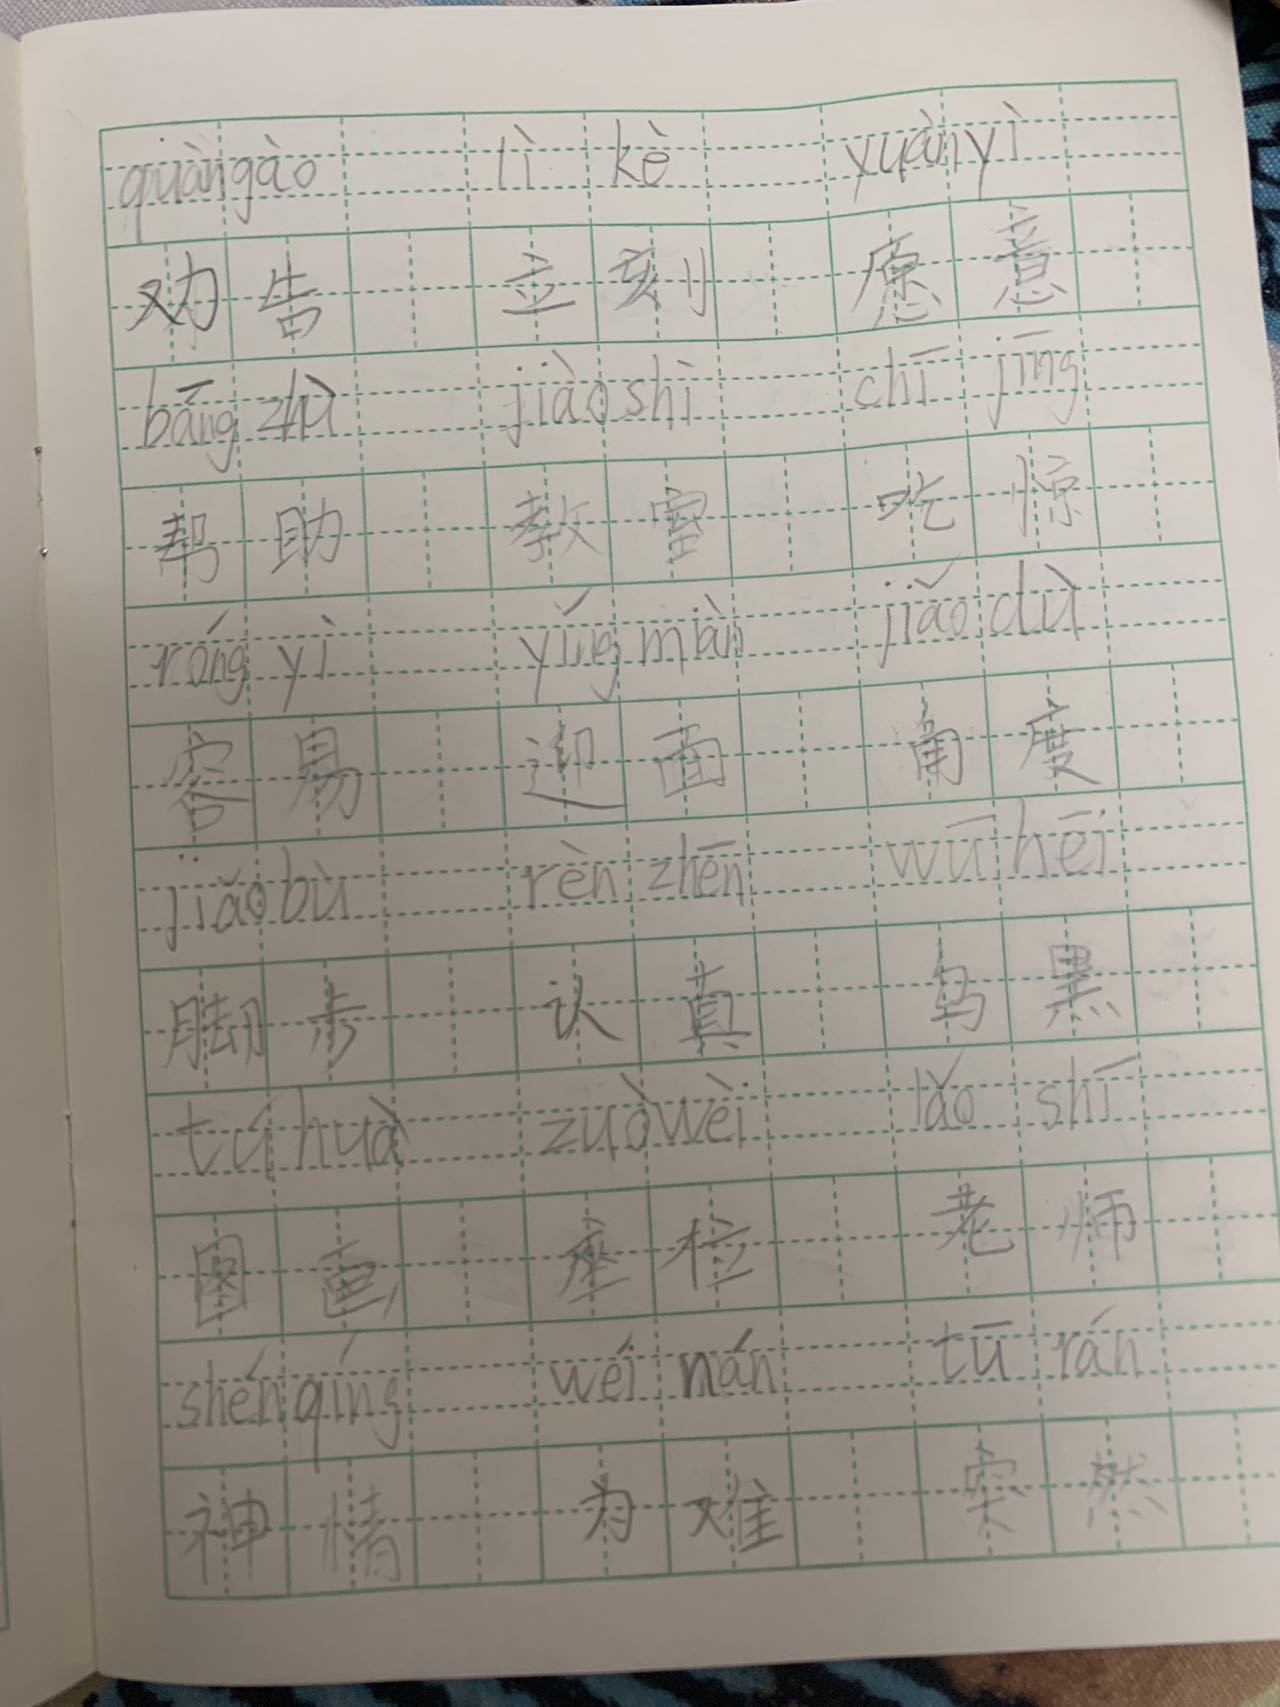 quàngào lì kè yuànyì
劝告 立刻 愿意
bāng zhù jiàoshì chī jīng
帮助 教室 吃惊
róng yì yíng miàn jiǎo dù
容易 迎面 角度
jiǎo bù rèn zhēn wū hēi
脚步 认真 乌黑
tú huà zuò wèi lǎo shī
图画 座位 老师
shén qíng wéi nán tū rán
神情 为难 突然